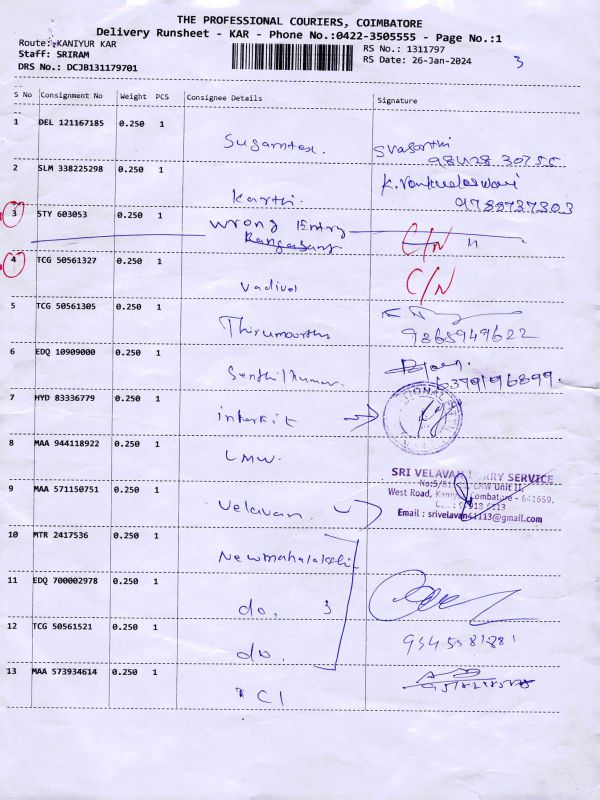 THE PROFESSIONAL COURIERS, COIMBATORE
Delivery Runsheet - KAR - Phone No.:0422-3505555 - Page No.:1
Route: KANIYUR KAR
RS No.: 1311797
Staff: SRIRAM
RS Date: 26-Jan-2024
3
DRS No.: DCJB131179701
S No Consignment No Weight PCS Consignee Details Signature
1 DEL 121167185 0.250 1
2 SLM 338225298 0.250 1 Karthi.
3 STY 603053 0.250 1 Wrong Entry C/N
4 TCG 50561327 0.250 1 Vadivel C/N
5 TCG 50561305 0.250 1 Thirumoorthi 9865949622
6 EDQ 10909000 0.250 1 Senthilkumar. 6379196899.
7 HYD 83336779 0.250 1 interkit
8 MAA 944118922 0.250 1 LMW.
SRI VELAVAN LORRY SERVICE
LMW Unit II,
West Road, Coimbatore - 641659.
Email : srivelavan41113@gmail.com
9 MAA 571150751 0.250 1 Velavan.
10 MTR 2417536 0.250 1 Newmahalakshmi
11 EDQ 700002978 0.250 1 do. 3
12 TCG 50561521 0.250 1 do.
13 MAA 573934614 0.250 1 TCI